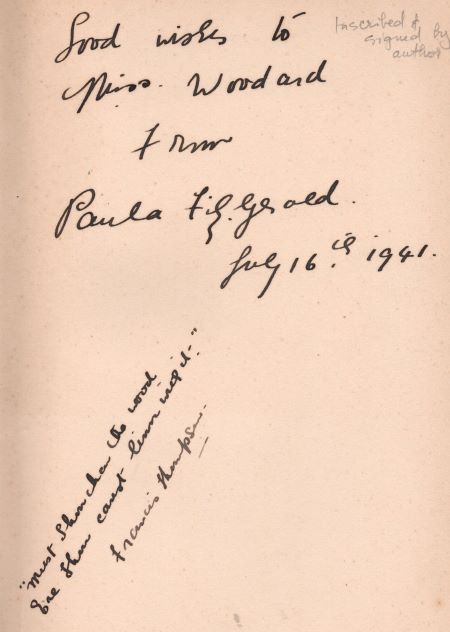 Good wishes to
Miss. Woodard
From
Paula FitzGerald.
July 16th, 1941.
Inscribed &
signed by
author
"Must Thou char the wood
Ere Thou canst limn with it-"
Francis Thompson.